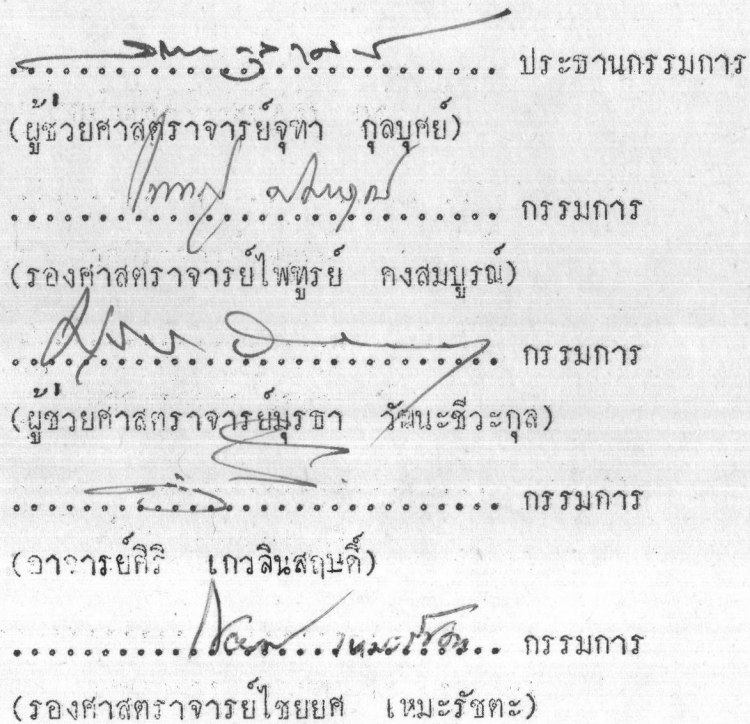 .................................. ประธานกรรมการ
(ผู้ช่วยศาสตราจารย์จุฑา กุลบุศย์)
.................................. กรรมการ
(รองศาสตราจารย์ไพฑูรย์ คงสมบูรณ์)
.................................. กรรมการ
(ผู้ช่วยศาสตราจารย์มุรธา วัฒนะชีวะกุล)
.................................. กรรมการ
(อาจารย์ศิริ เกวลินสฤษดิ์)
..........ไชยยศ...เหมะรัชตะ.. กรรมการ
(รองศาสตราจารย์ไชยยศ เหมะรัชตะ)